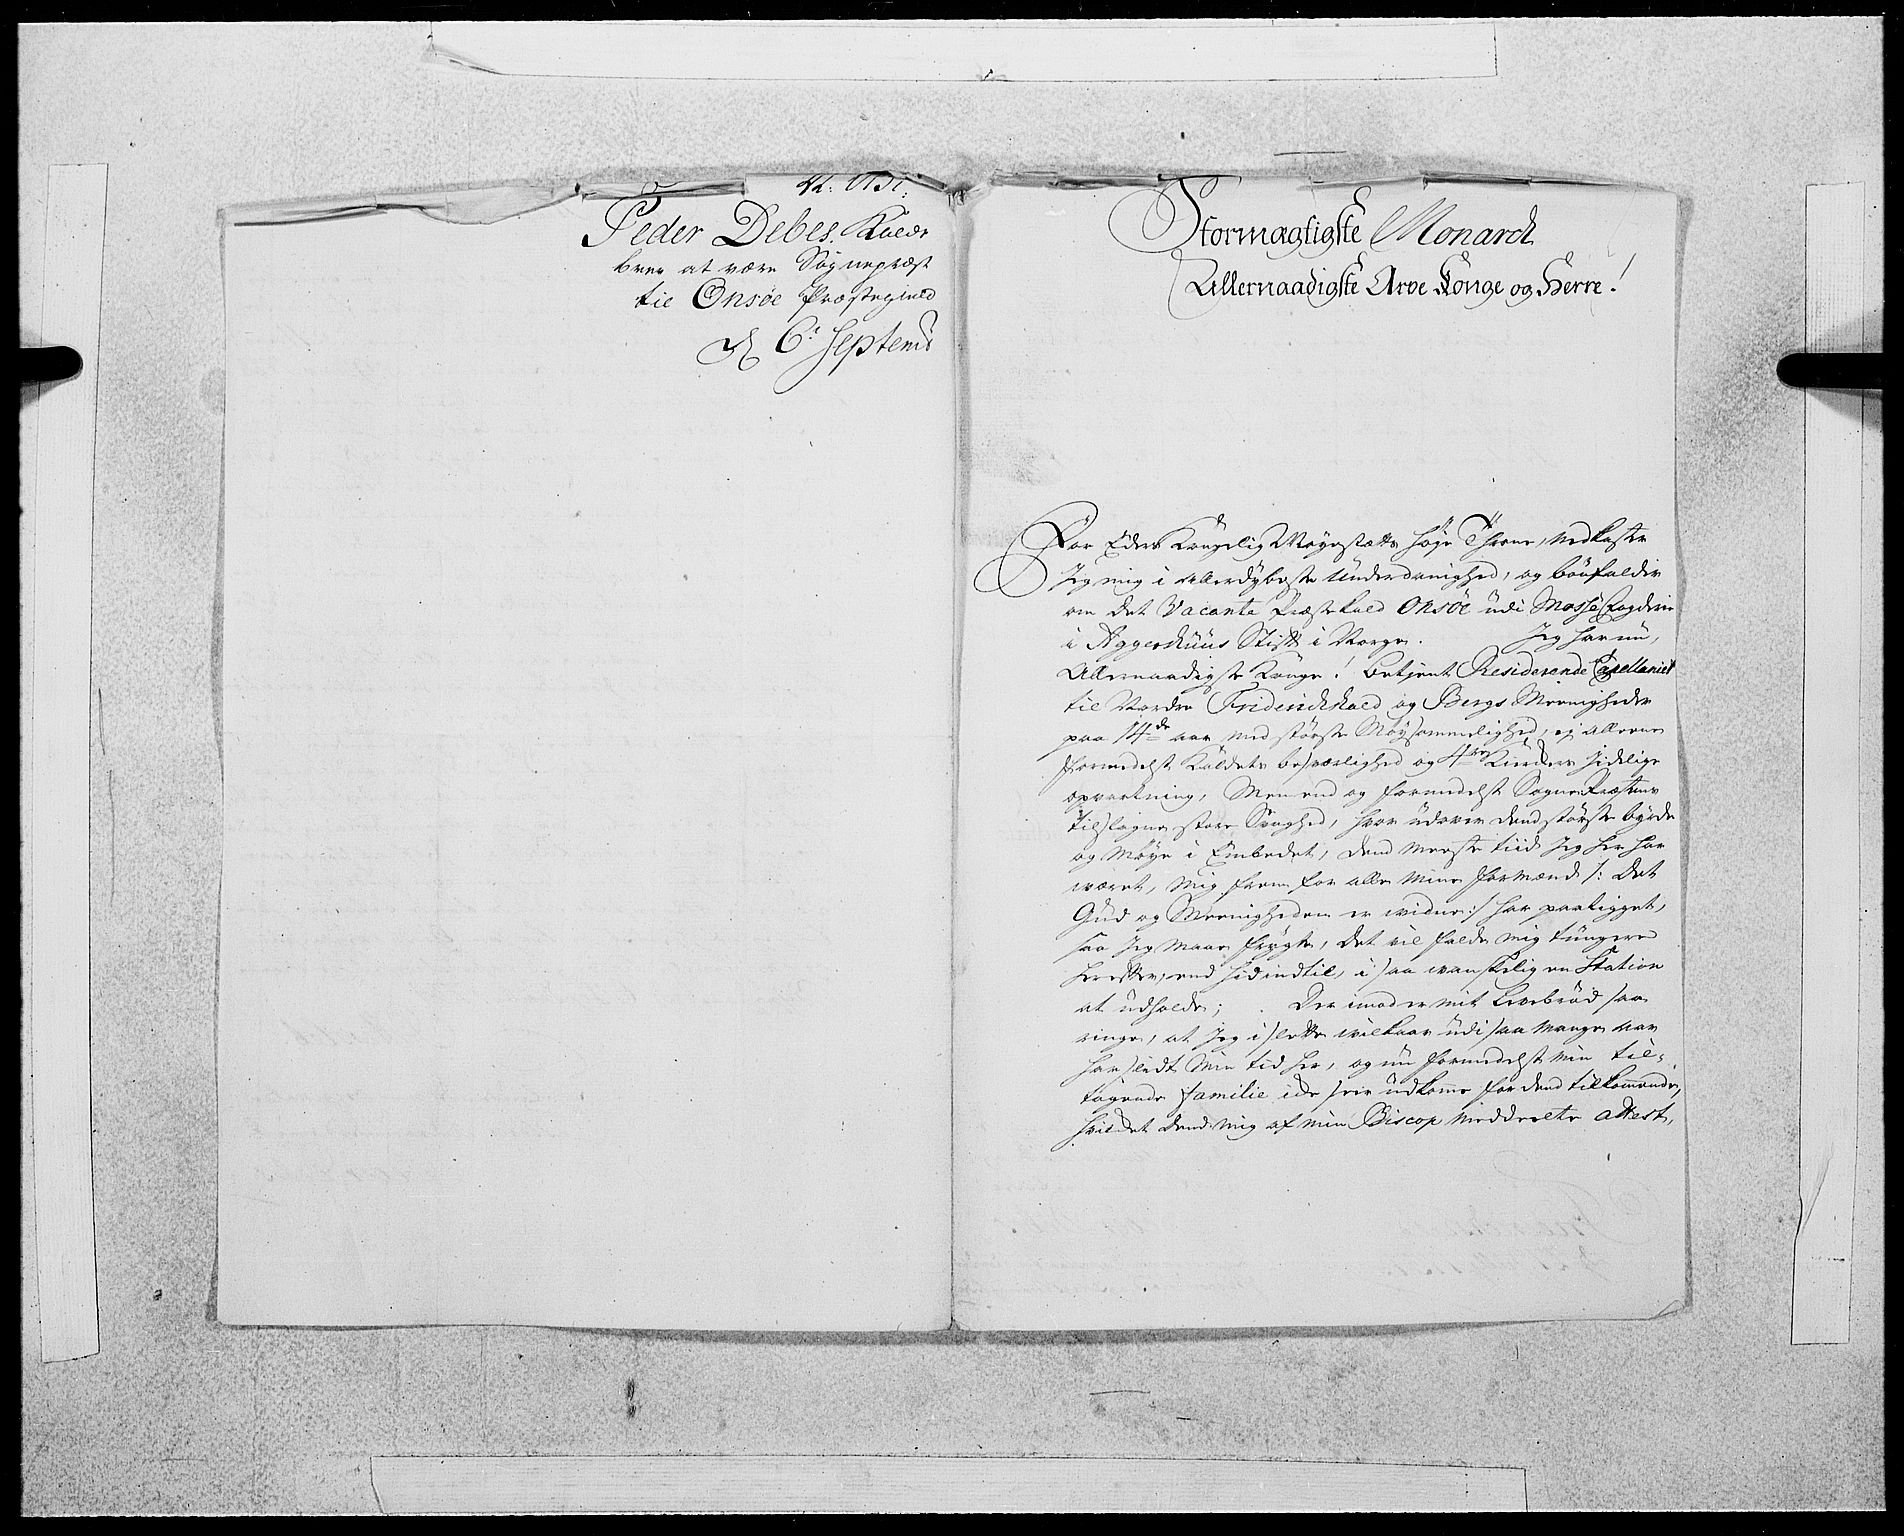 Peder Debes Kalds
brev at være Sognepræst
til Onsøe Præstegield
d 6t Septemb
Stormægtigste Monarch
Allernaadigste Arve Konge og Herre!
For Eders Kongelig Mayestætts høye Throne, nedkaster
Jeg mig i allerdybeste Underdanighed, og bönfalder
om det Vacante Præstekald Onsöe udi Mosse Fogderie
i Aggershuus Stift i Norge. Jeg har nu,
Allernaadigste Konge! betient Residerende Capellaniet
til Norder Friderichshald og Bergs Meenigheder
paa 14de aar med störste Möysommelighed, ej alleene
formedelst Kaldets besværlighed og 4re Kirkers jidelige
opvartning, Men end og formedelst Sogne Præstens
tilslagne store Svaghed, hvor udover dend störste byrde
og Møye i Embedet, dend meeste tiid Jeg her har
været, mig frem for alle mine Formænd /: det
Gud og Meenigheden er vidne :/ har paaligget,
saa Jeg maae frygte, det vil falde mig tungere
herefter, end hidindtil, i saa vanskelig en Station
at udholde; Der imod er mit Levebrød saa
ringe, at Jeg i slette vilkaar udi saa mange aar
har slidt min tid her, og nu formedelst min til-
tagende familie icke seer udkomme for dend tilkommende,
hvilket dend mig af min Biscop meddeelte attest,